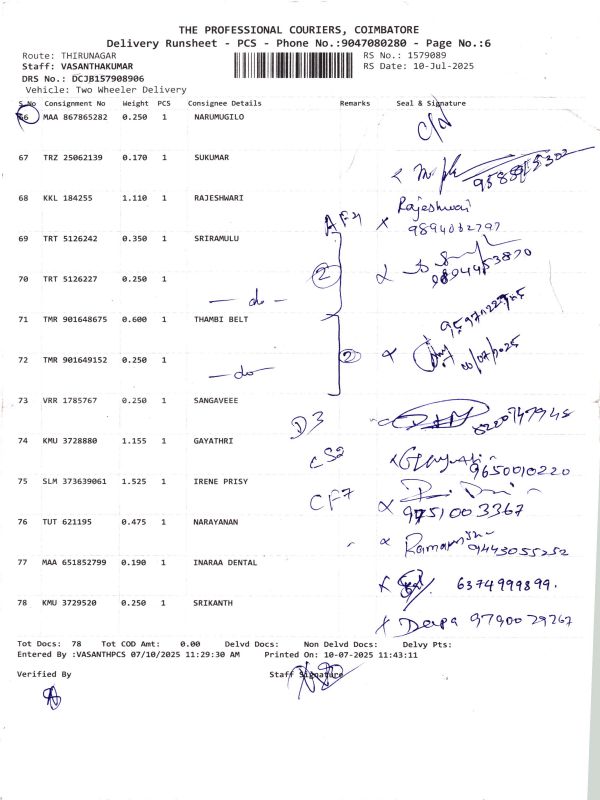 THE PROFESSIONAL COURIERS, COIMBATORE
Delivery Runsheet - PCS - Phone No.:9047080280 - Page No.:6
Route: THIRUNAGAR RS No.: 1579089
Staff: VASANTHAKUMAR RS Date: 10-Jul-2025
DRS No.: DCJB157908906
Vehicle: Two Wheeler Delivery
S.No Consignment No Weight PCS Consignee Details Remarks Seal & Signature
66 MAA 867865282 0.250 1 NARUMUGILO
67 TRZ 25062139 0.170 1 SUKUMAR
68 KKL 184255 1.110 1 RAJESHWARI Rajeshwari
69 TRT 5126242 0.350 1 SRIRAMULU
70 TRT 5126227 0.250 1 2
— do —
71 TMR 901648675 0.600 1 THAMBI BELT
72 TMR 901649152 0.250 1 2
— do —
73 VRR 1785767 0.250 1 SANGAVEEE D3
74 KMU 3728880 1.155 1 GAYATHRI CS2 Gayatri 9650010220
75 SLM 373639061 1.525 1 IRENE PRISY CF7 9751003367
76 TUT 621195 0.475 1 NARAYANAN 9443055252
77 MAA 651852799 0.190 1 INARAA DENTAL 6374999899.
78 KMU 3729520 0.250 1 SRIKANTH Deepa 9790029267
Tot Docs: 78 Tot COD Amt: 0.00 Delvd Docs: Non Delvd Docs: Delvy Pts:
Entered By :VASANTHPCS 07/10/2025 11:29:30 AM Printed On: 10-07-2025 11:43:11
Verified By Staff Signature